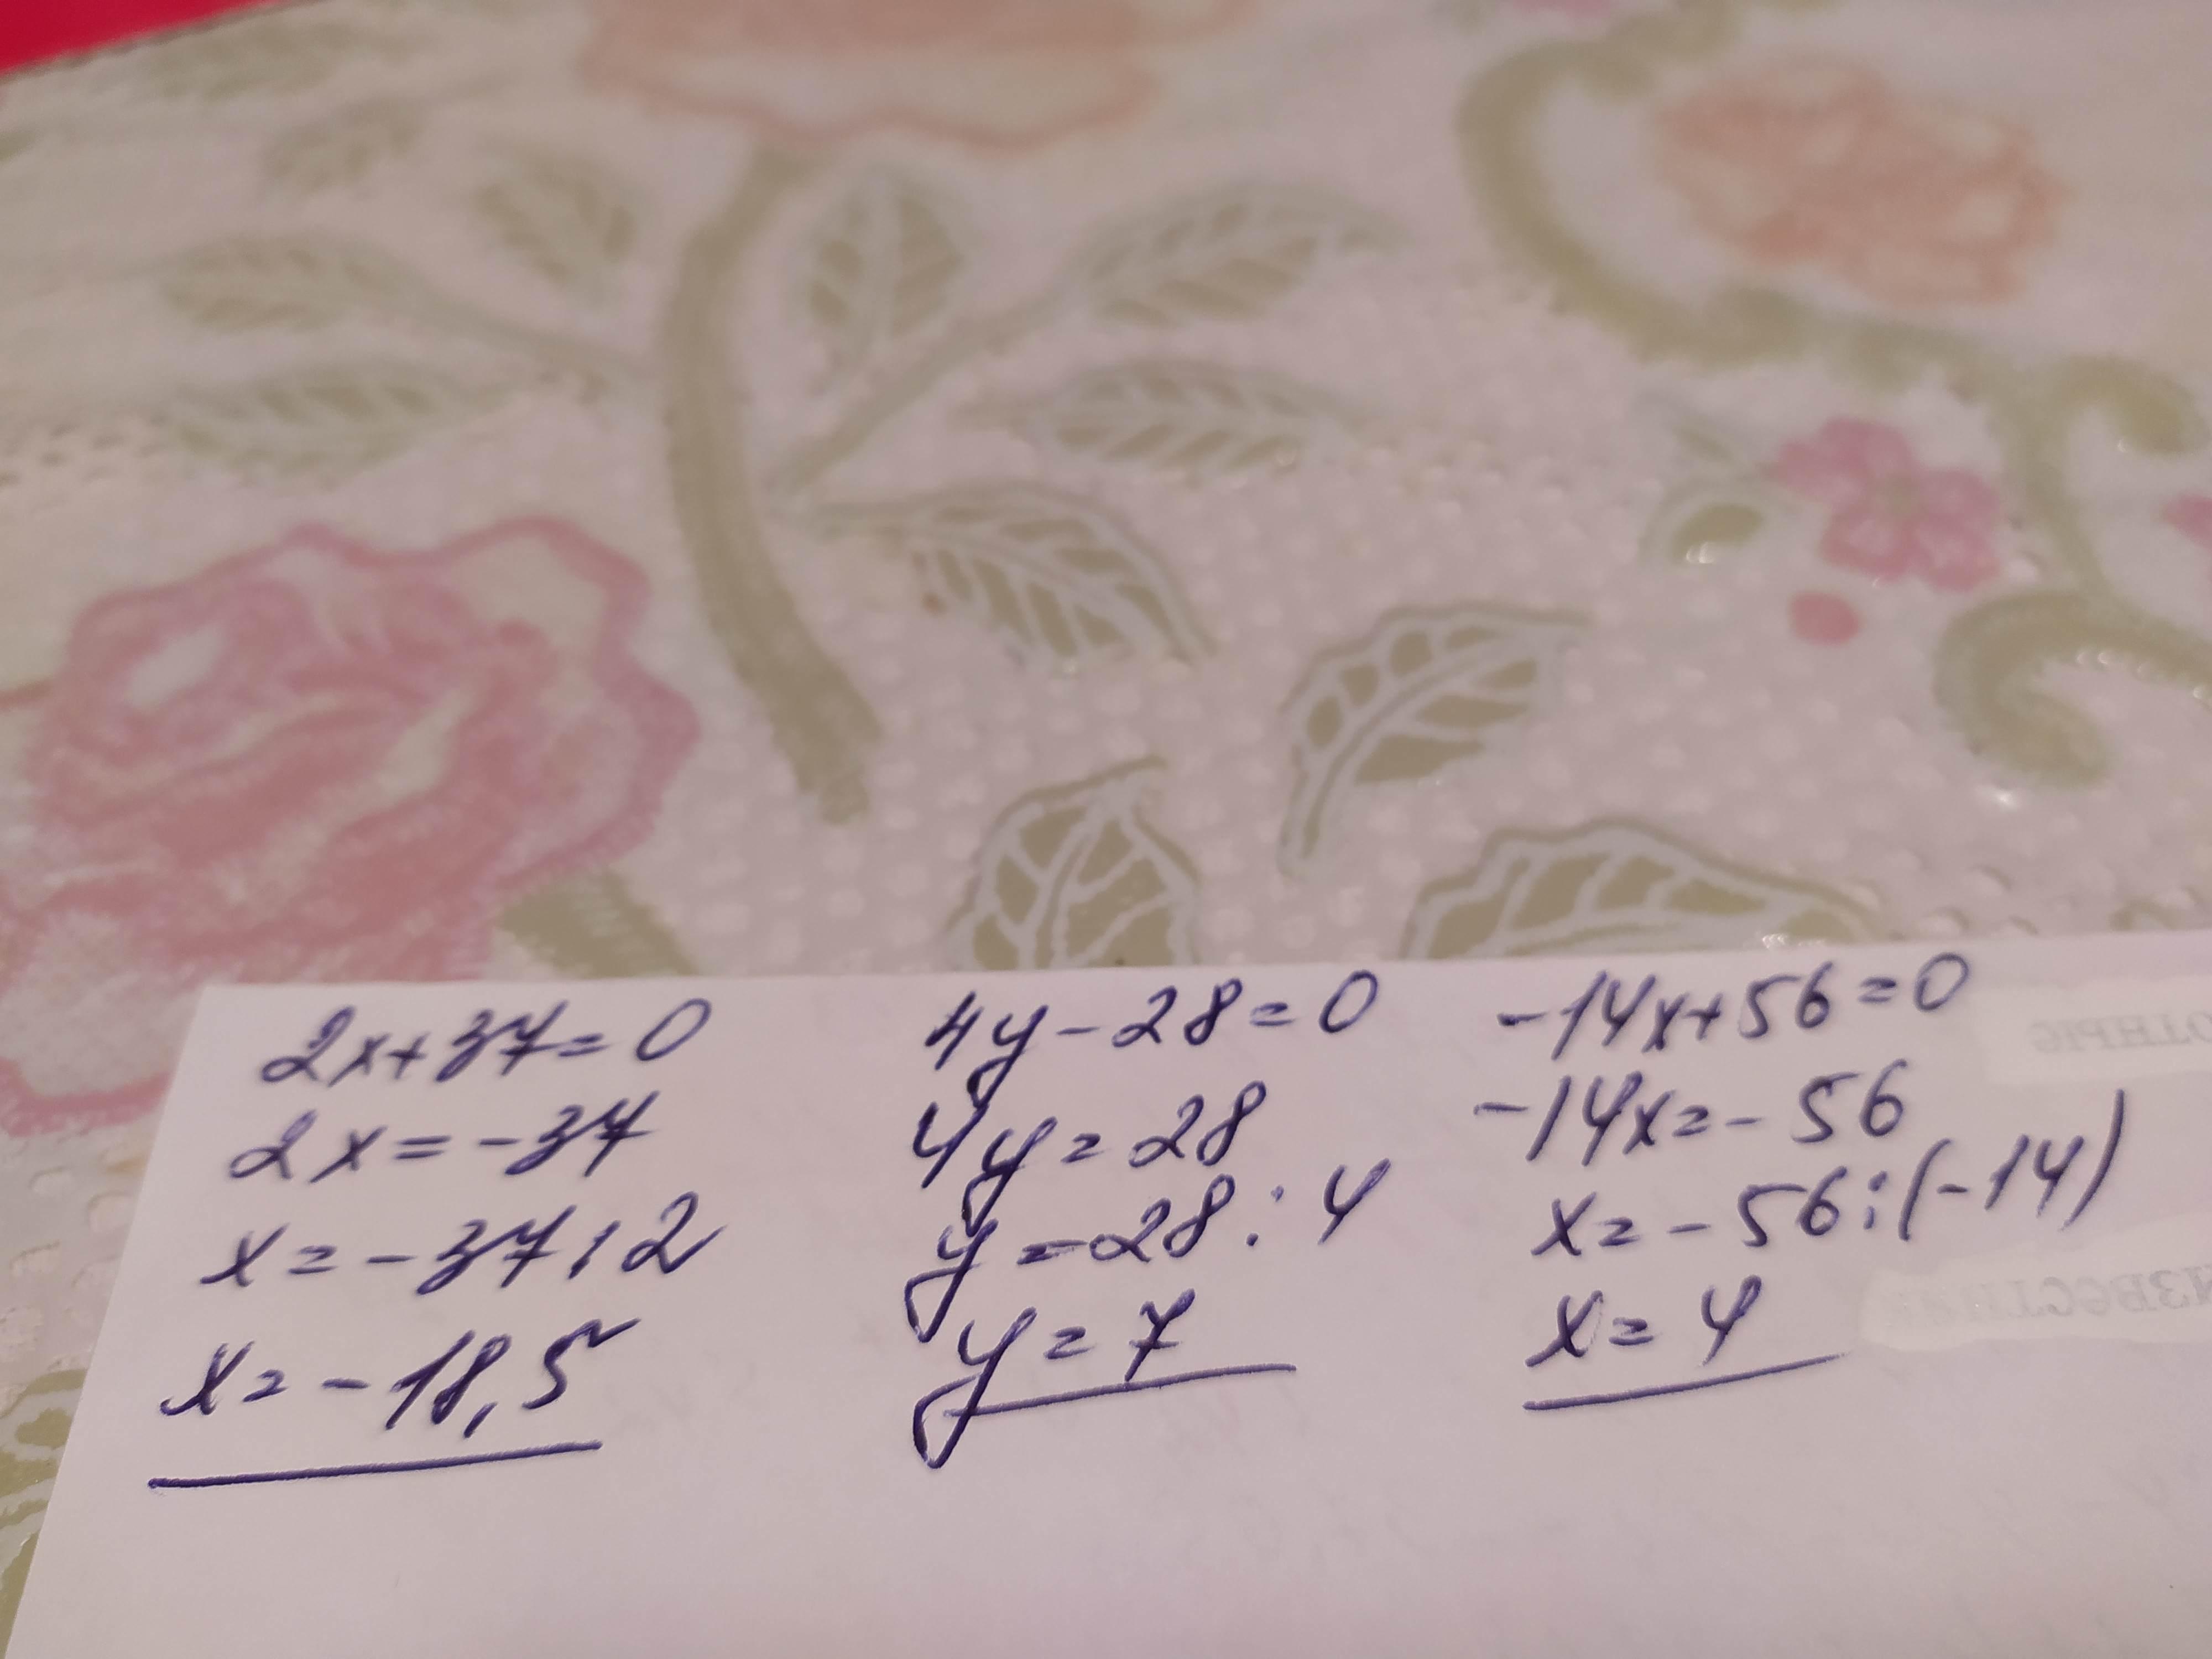 2x+37=0
2x=-37
x=-37:2
x=-18,5
4y-28=0
4y=28
y=28:4
y=7
-14x+56=0
-14x=-56
x=-56:(-14)
x=4